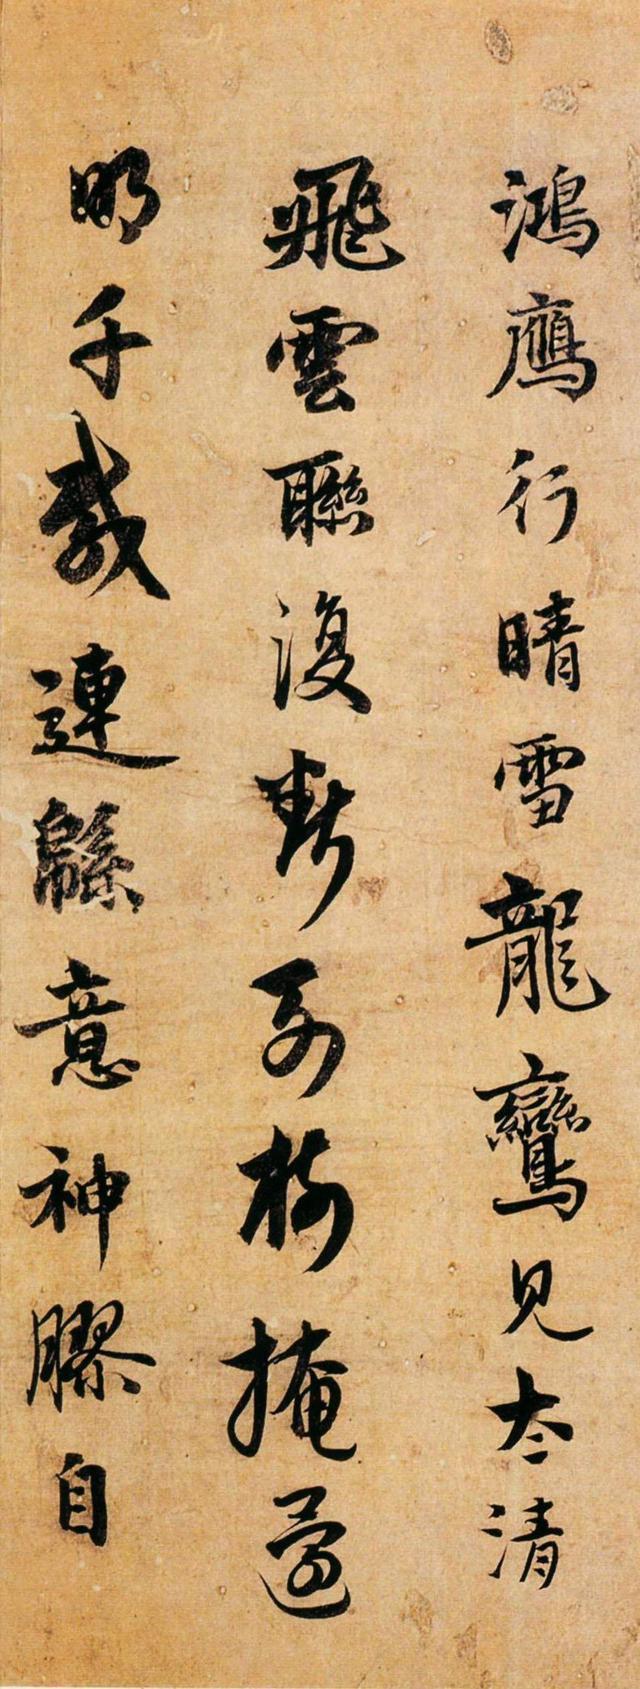 鴻鴈行晴雪龍鸞見太清
飛雲聯復斷列樹掩還
明千載連緜意神膠自